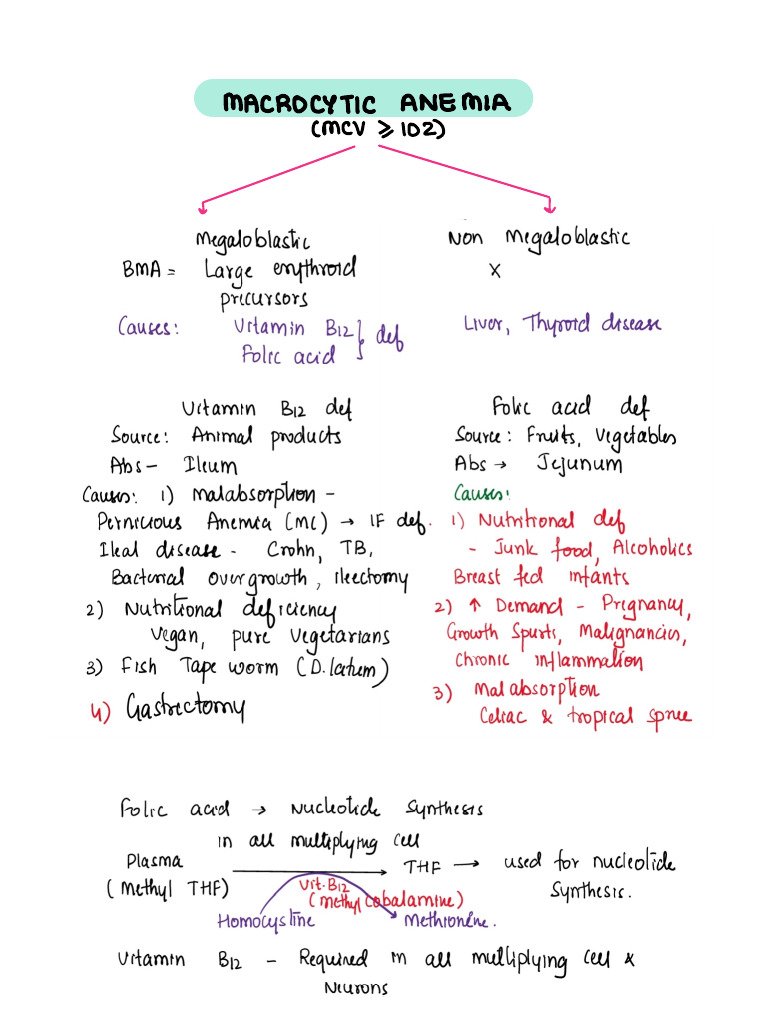 MACROCYTIC ANEMIA
(MCV ≥ 102)
Megaloblastic
BMA = Large erythroid
precursors
Causes: Vitamin B12 } def
Folic acid
Non Megaloblastic
X
Liver, Thyroid disease
Vitamin B12 def
Source: Animal products
Abs - Ileum
Causes: 1) Malabsorption -
Pernicious Anemia (MC) → IF def.
Ileal disease - Crohn, TB,
Bacterial overgrowth, ileectomy
2) Nutritional deficiency
Vegan, pure vegetarians
3) Fish Tape worm (D.latum)
4) Gastrectomy
Folic acid def
Source: Fruits, Vegetables
Abs → Jejunum
Causes:
1) Nutritional def
- Junk food, Alcoholics
Breast fed infants
2) ↑ Demand - Pregnancy,
Growth Spurts, Malignancies,
Chronic inflammation
3) Malabsorption
Celiac & tropical sprue
Folic acid → Nucleotide Synthesis
in all multiplying cell
Plasma → THF → used for nucleotide
(Methyl THF) Synthesis.
Vit.B12
(methyl cobalamine)
Homocystine Methionine.
Vitamin B12 - Required in all multiplying cell &
Neurons